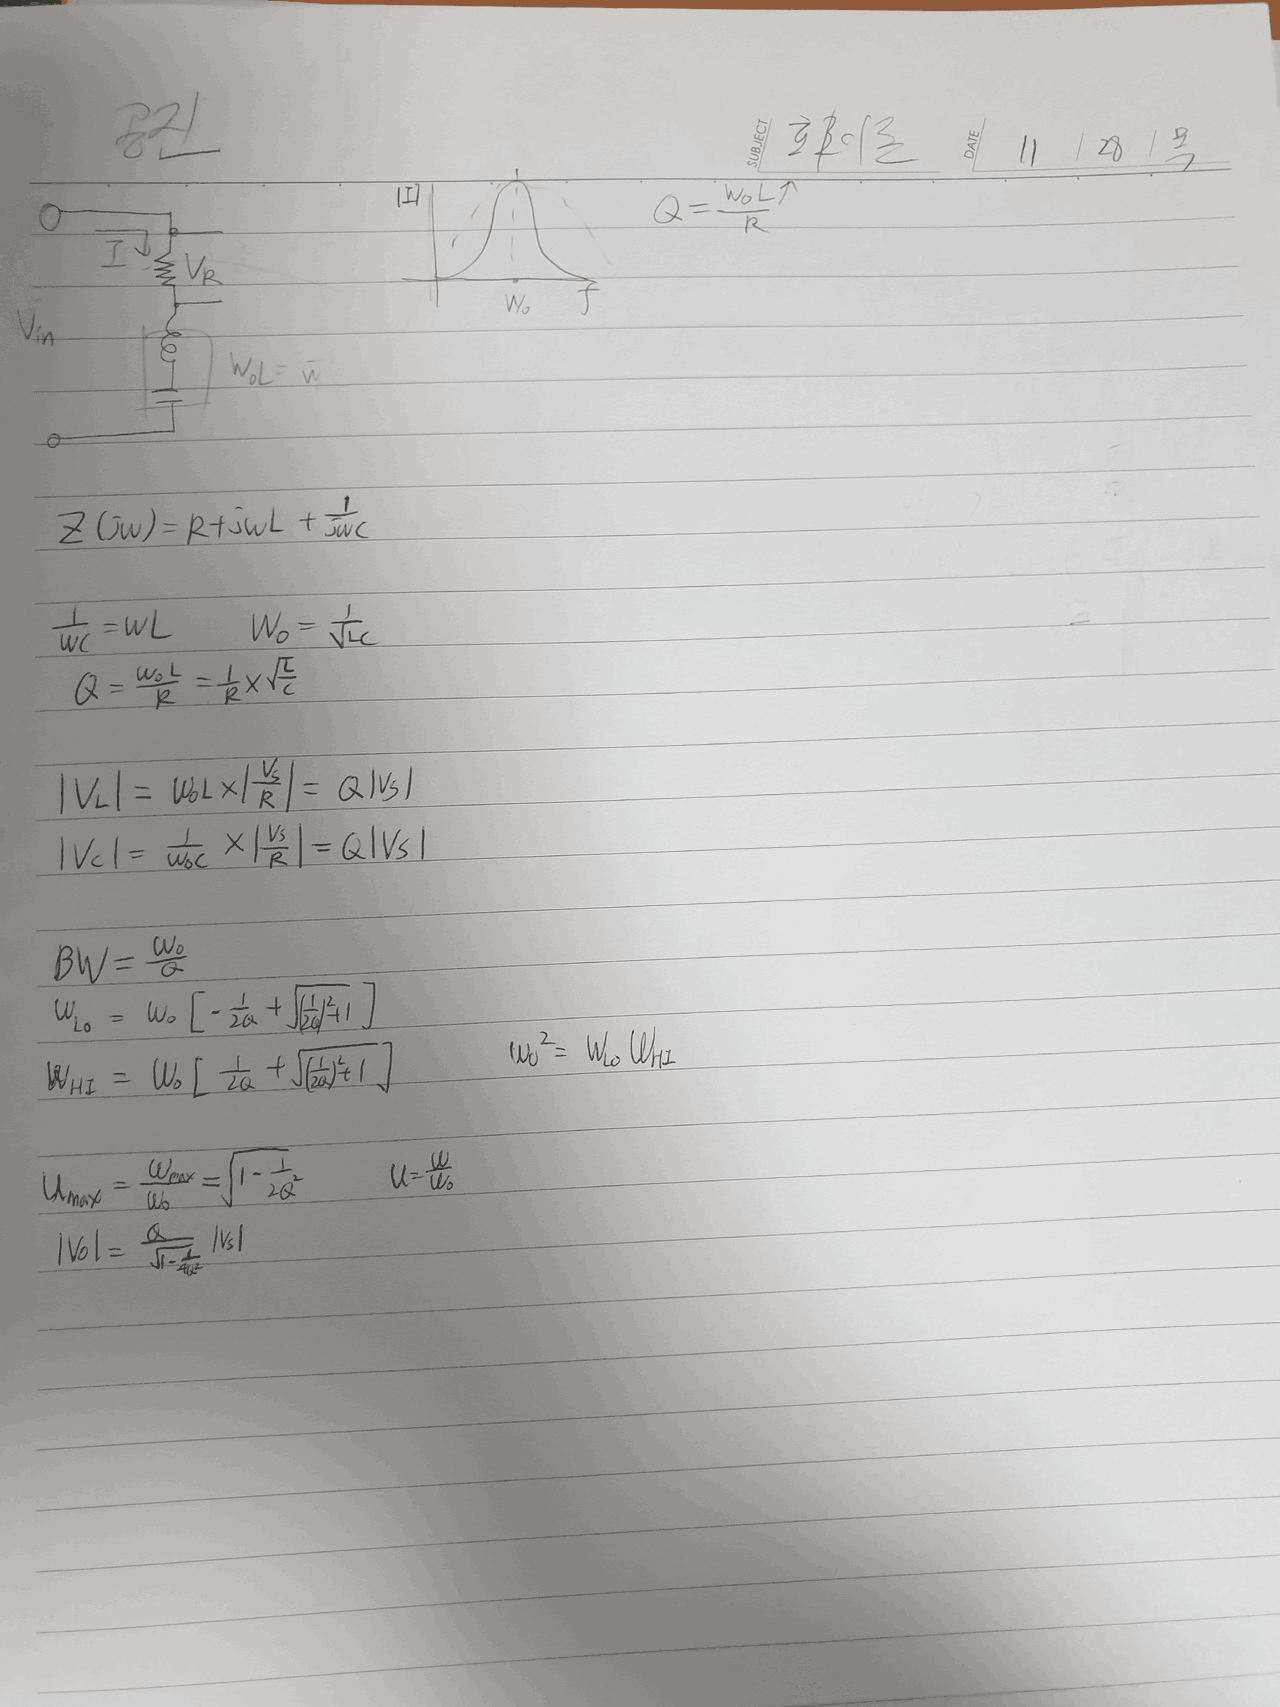 공진
SUBJECT 회로이론 DATE 11 / 28 / 목
|I|
Q = W₀L↑/R
I
V_R
W₀ f
Vin
W₀L = w
Z(jw) = R+jwL + 1/jwC
1/wC = wL W₀ = 1/√LC
Q = w₀L/R = 1/R × √L/C
|V_L| = W₀L × |Vs/R| = Q|Vs|
|Vc| = 1/W₀C × |Vs/R| = Q|Vs|
BW = W₀/Q
W_Lo = W₀ [ - 1/2Q + √(1/2Q)²+1 ]
W_HI = W₀ [ 1/2Q + √(1/2Q)²+1 ] W₀² = W_Lo W_HI
U_max = W_max/W₀ = √1 - 1/2Q² U = W/W₀
|Vo| = Q/√1 - 1/4Q² |Vs|